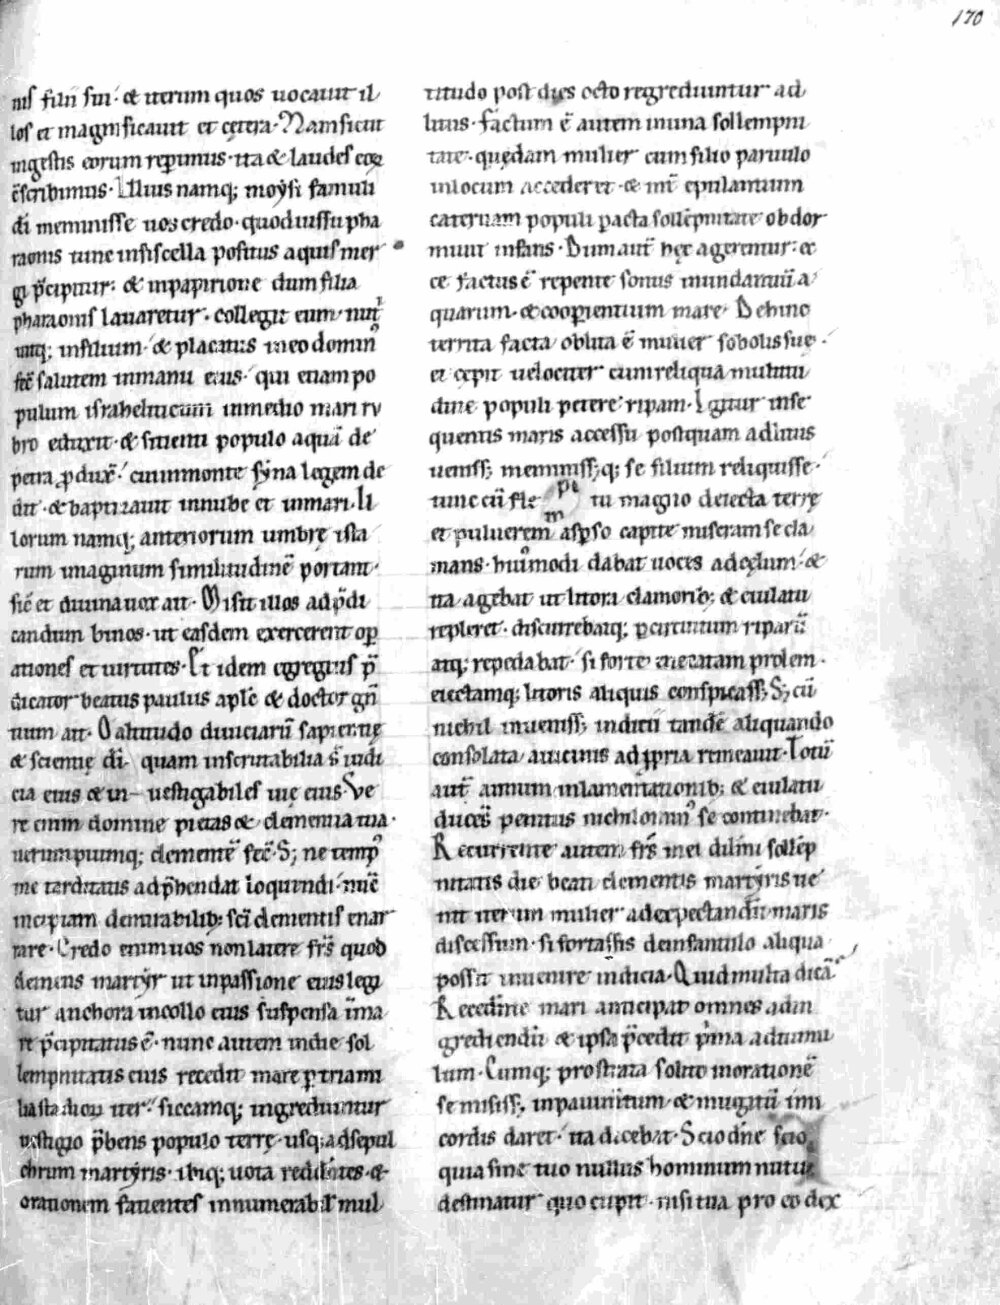 170
nis filii sui· & iterum quos uocauit il
los et magnificauit et cętera· Nam sicut
ingestis eorum repperimus· ita & laudes eoꝝ
c̄scribimus· Illius namq; moẏsi famuli
d̄i meminisse uos credo· quod iussu pha
raonis tunc in fiscella positus aquis mer
gi p̄cipitur: & inpapirione dum filia
pharaonis lauaretur· collegit eum· nut
uitq; in filium· & placatus in eo domin᷒
fec̄ salutem inmanu eius· qui etiam po
pulum israheliticum inmedio mari ru
bro eduxit· & sitienti populo aquā de
petra ꝓdux̄· cui inmonte sẏna legem de
dit· & baptizauit innube et inmari· Il
lorum namq; anteriorum umbrę ista
rum imaginum similitudinē portant·
sic̄ et diuina uox ait· Misit illos ad p̄di
candum binos· ut easdem exercerent oꝑ
ationes et uirtutes· Et idem egregius p̄
dicator beatus paulus apl̄c & doctor gn̄
tium ait· O altitudo diuiciarū sapientię
& scientię d̄i quam inscrutabilia s̄ iudi
cia eius & in uestigabiles uię eius· Ve
re enim domine pietas & clementia tua·
utrumpiumq; clementē fec̄· S; ne temp᷒
me tarditatis ad p̄hendat loquendi· nūc
incipiam demirabilib; sc̄i clementis enar
rare· Credo enim uos non latere fr̄s quod
clemens martẏr ut inpassione eius legi
tur anchora incollo eius suspensa ī ma
re p̄cipitatus ē· nunc autem indie sol
lempnitatis eius recedit mare ꝑ triami
iter· siccamq; ingrediuntur
uestigio p̄bens populo terrę· usq; ad sepul
chrum martẏris· ibiq; uota reddentes &
orationem fauentes innumerabil̄ mul
titudo post dies octo regrediuntur ad
limis· factum ē autem inuna sollempni
tate· quędam mulier cum filio paruulo
inlocum accederet· & int̄ epulantium
cateruam populi ꝑacta sollēpnitate obdor
miuit infans· Dum aut̄ hęc agerentur: &
ce factus ē repente sonus inundantiū a
quarum· & cooperientium mare· Dehinc
territa facta oblita ē mulier sobolis suę·
et cępit uelociter cum reliqua multitu
dine populi petere ripam· Igitur inse
quentis maris accessu postquam aditus
ueniss; meminiss;q; se filium reliquisse·
tunc cū fle tu magno deiecta terrę
et puluerem asꝑso capite miseram se cla
mans· hui᷒modi dabat uoces ad cęlum· &
ita agebat ut litora clamorib; & eiulatu
repleret· discurrebatq; ꝑ circuitum riparū
atq; repedabat· si forte necatam prolem·
eiectamq; litoris aliquis conspicass; S; cū
nichil inueniss; indicii tandē aliquando
consolata a uicinis ad ꝓpria remeauit· Totū
aut̄ annum inlamentationib; & eiulatu
ducēs penitus nichilomin᷒ se continebat·
Recurrente autem fr̄s mei dil̄mi sollēp
nitatis die beati clementis martẏris ue
nit iterum mulier ad expectandū maris
discessum· si fortassis deinfantulo aliqua
possit inuenire indicia· Quid multa dicā
Recedēte mari anticipat omnes adin
grediendū & ipsa p̄cedit prima ad tumu
lum· Cumq; prostrata solito in orationē
se misiss; inpauimtum & mugitū imi
cordis daret· ita dicebat· Scio dn̄e scio
quia sine tuo nullus hominum nutu
destinatur quo cupit· nisi tua pro eo dex